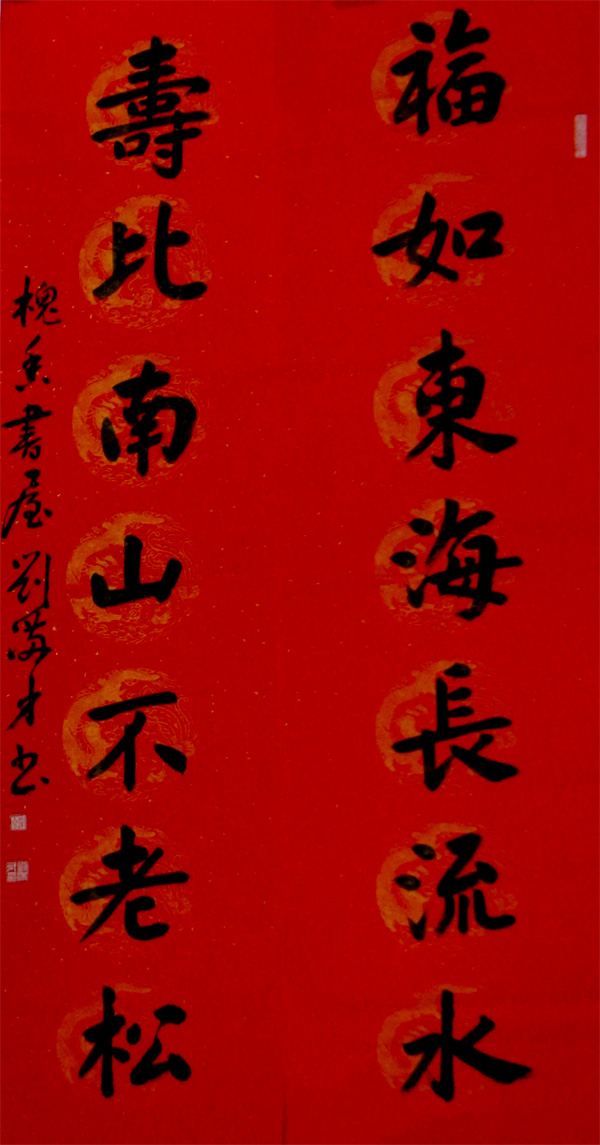 福如東海長流水
壽比南山不老松
槐香書屋劉
才书